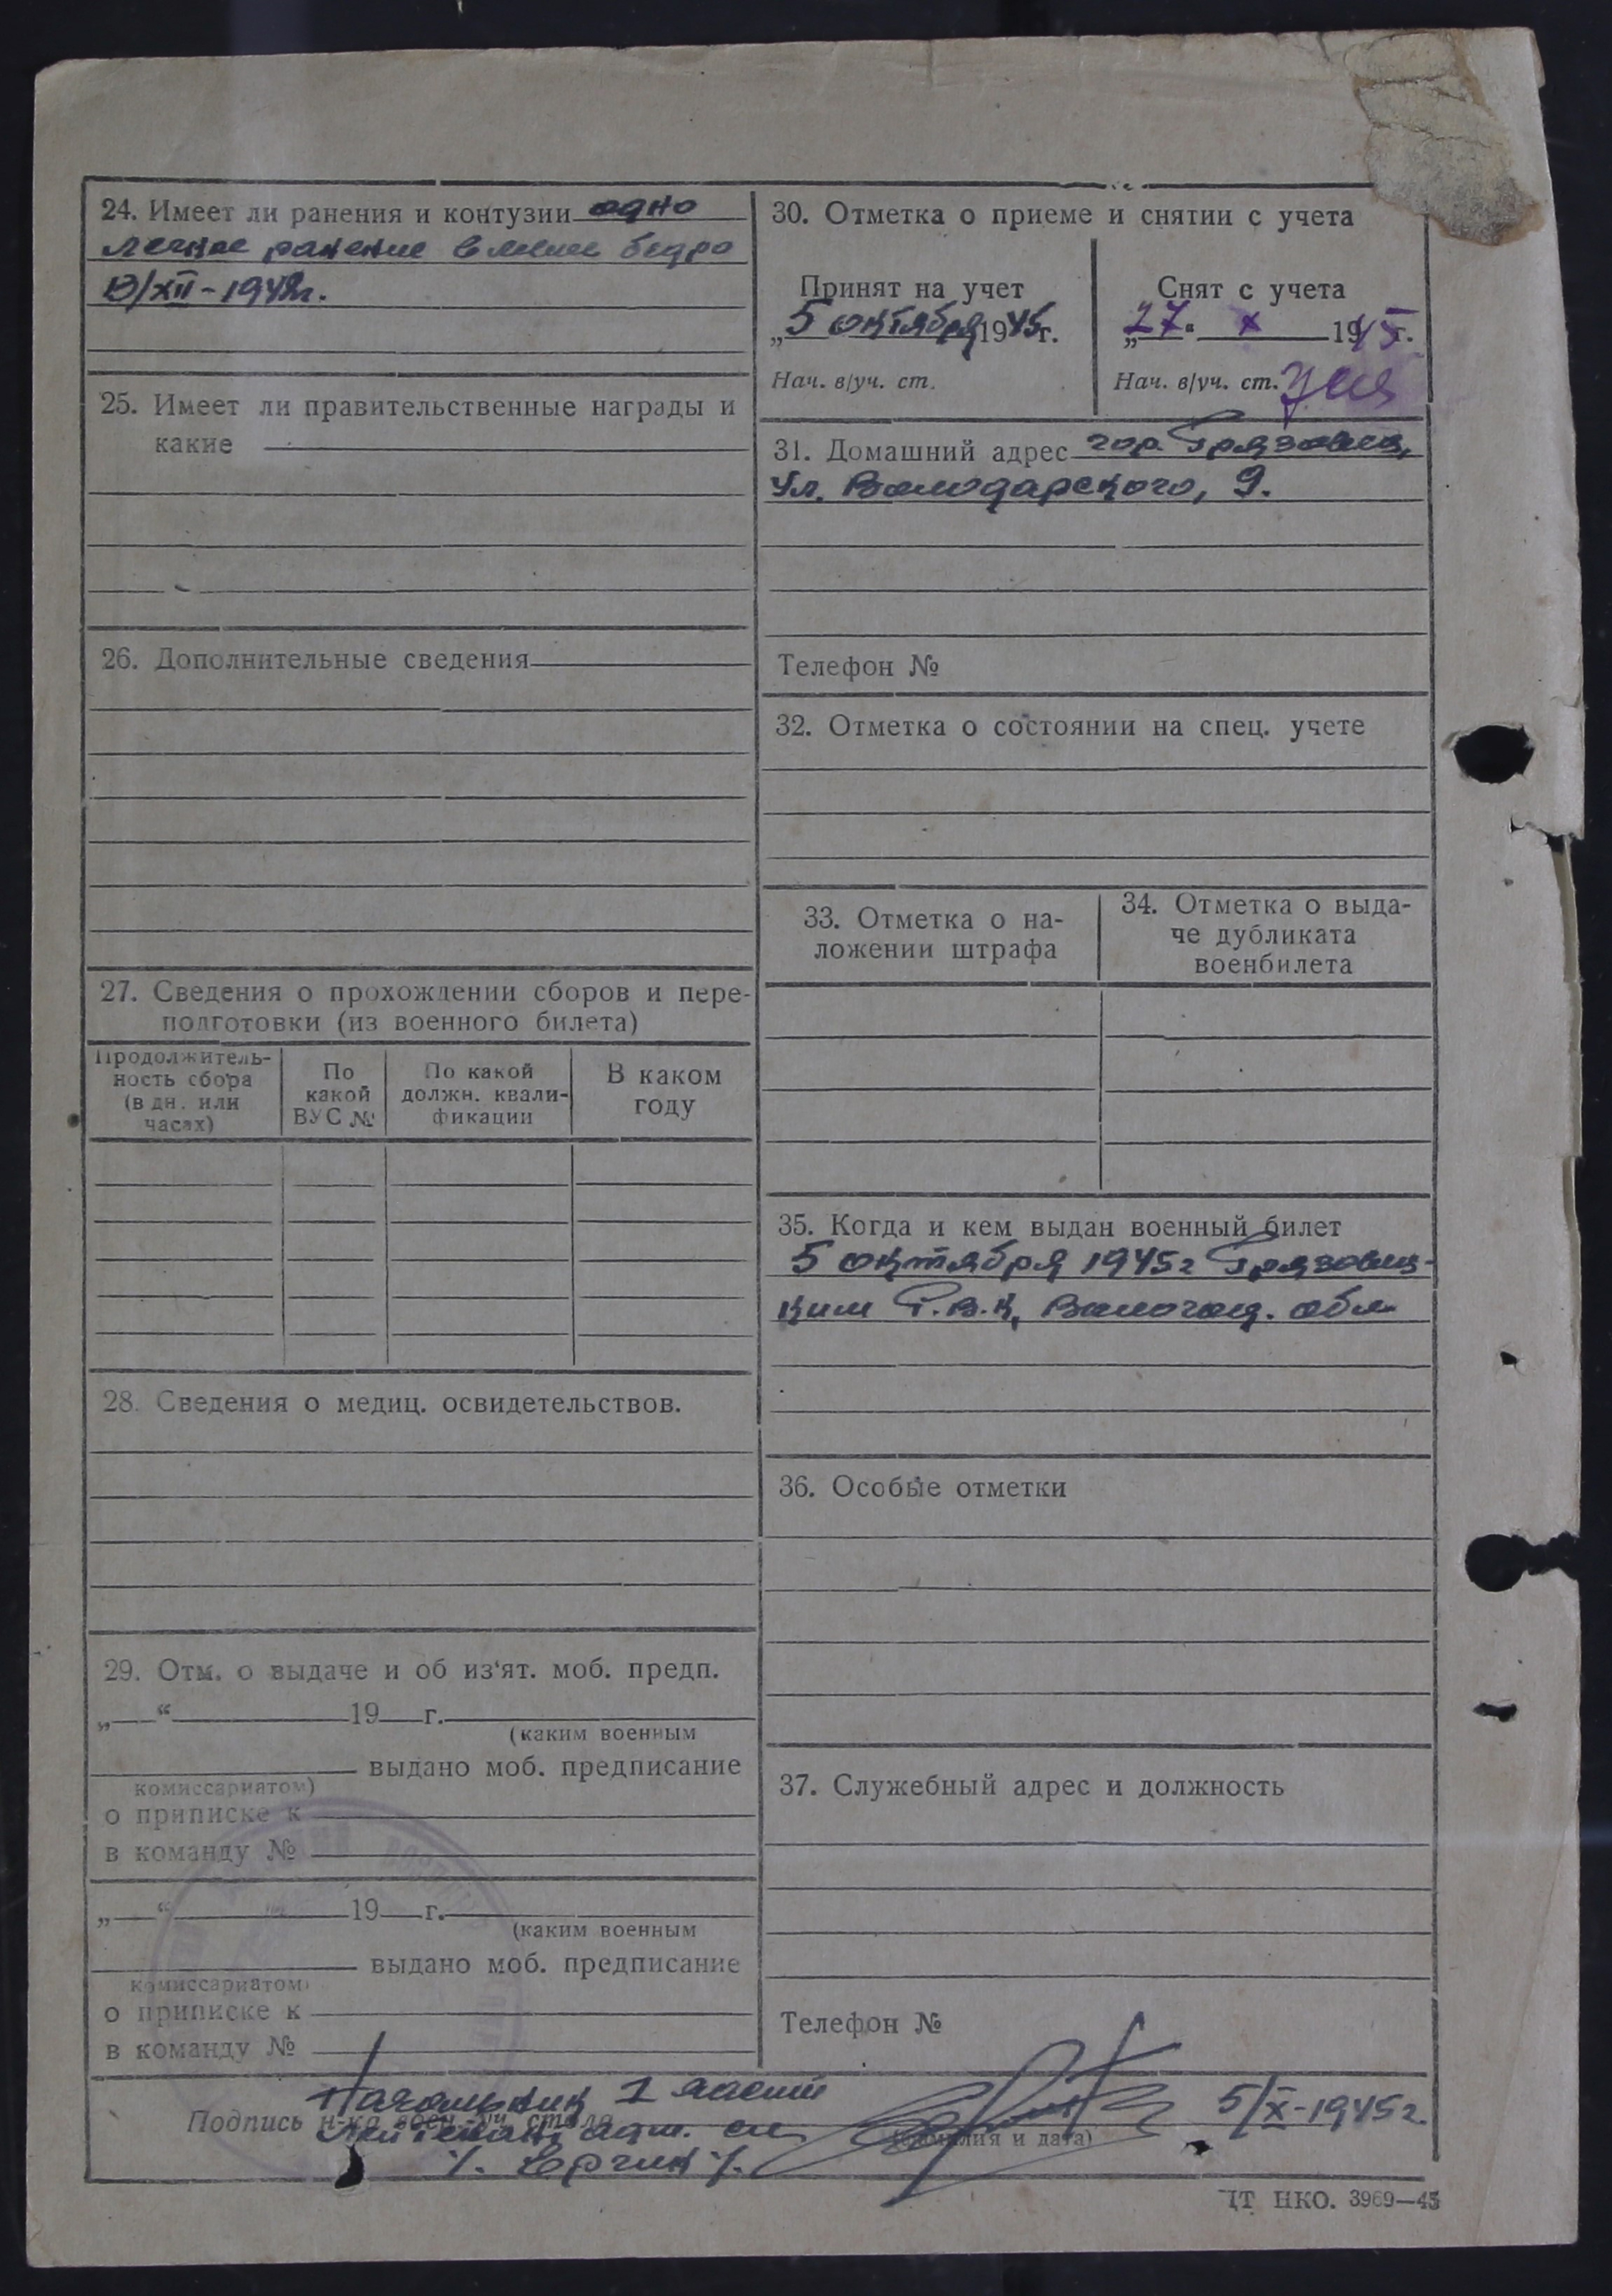 24. Имеет ли ранения и контузии одно
легкое ранение в левое бедро
В/XII-1942г.
25. Имеет ли правительственные награды и
какие
26. Дополнительные сведения
27. Сведения о прохождении сборов и пере-
подготовки (из военного билета)
Продолжитель-
ность сбора
(в дн. или
часах)
По
какой
ВУС №
По какой
должн. квали-
фикации
В каком
году
28. Сведения о медиц. освидетельствов.
29. Отм. о выдаче и об из'ят. моб. предп.
„ “ 19 г.
(каким военным
выдано моб. предписание
комиссариатом)
о приписке к
в команду №
„ “ 19 г.
(каким военным
выдано моб. предписание
комиссариатом)
о приписке к
в команду №
30. Отметка о приеме и снятии с учета
Принят на учет
„5 октября 1945г.
Нач. в/уч. ст.
Снят с учета
„27“ X 1945г.
Нач. в/уч. ст.
31. Домашний адрес гор. Грязовец,
ул. Володарского, 9.
Телефон №
32. Отметка о состоянии на спец. учете
33. Отметка о на-
ложении штрафа
34. Отметка о выда-
че дубликата
военбилета
35. Когда и кем выдан военный билет
5 октября 1945г Грязовец-
ким Р.В.К, Вологод. обл.
36. Особые отметки
37. Служебный адрес и должность
Телефон №
Начальник 1 части
Подпись н-ка воен.-уч. стола
лейтенант адм. сл.
5/X-1945г.
(фамилия и дата)
/. Ергин /.
ЦТ НКО. 3969—45